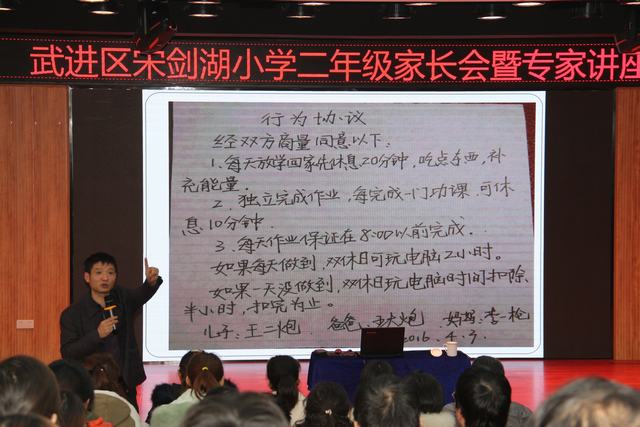 武进区宋剑湖小学二年级家长会暨专家讲座
行为协议
经双方商量同意以下：
1. 每天放学回家先休息20分钟，吃点东西，补
充能量。
2. 独立完成作业，每完成一门功课，可休
息10分钟。
3. 每天作业保证在8:00以前完成。
如果每天做到，双休日可玩电脑2小时。
如果一天没做到，双休日玩电脑时间扣除
半小时，扣完为止。
儿子：王二炮 爸爸：王大炮 妈妈：李一枪
2016.4.5